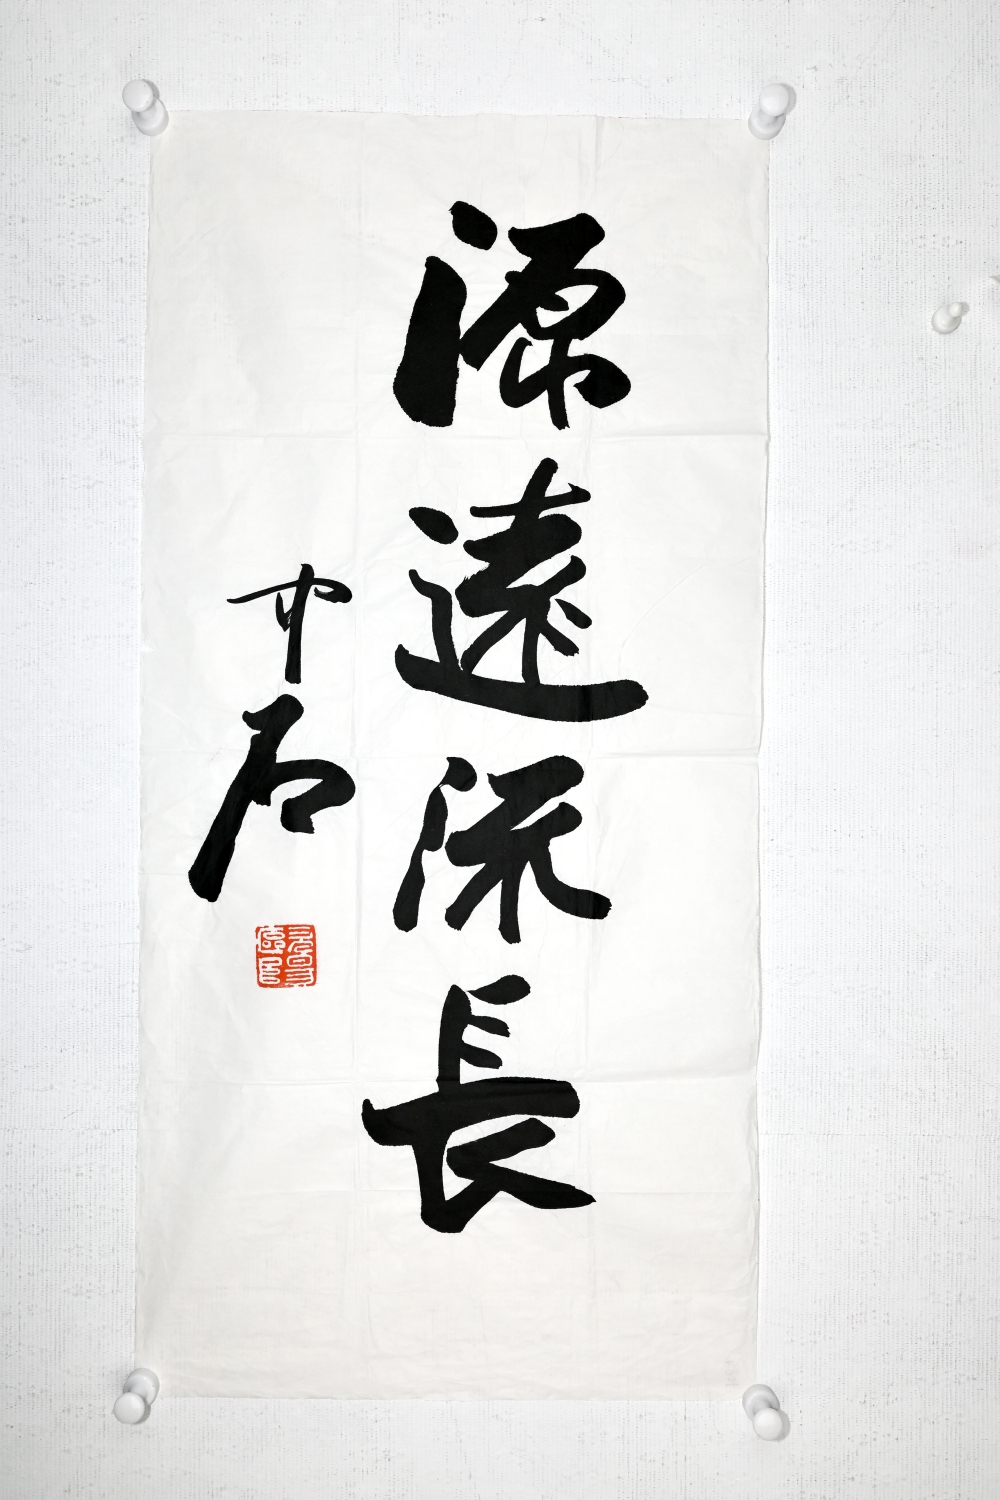 源遠流長
中石